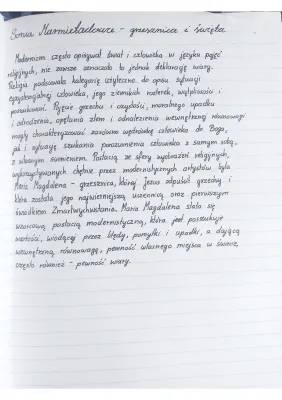 Sonia Marmieładowa - grzesznica i święta
Modernizm często opisywał świat i człowieka w języku pojęć
religijnych, nie zawsze oznaczało to jednak deklarację wiary.
Religia podsuwała kategorie użyteczne do opisu sytuacji
egzystencjalnej człowieka, jego ziemskich rozterek, wątpliwości i
poszukiwań. Pojęcia grzechu i czystości, moralnego upadku
i odrodzenia, opętania złem i odnalezienia wewnętrznej równowagi
mogły charakteryzować zarówno wędrówkę człowieka do Boga,
jak i sytuację szukania porozumienia człowieka z samym sobą,
z własnym sumieniem. Postacią ze sfery wyobrażeń religijnych,
wykorzystywanych chętnie przez modernistycznych artystów była
Maria Magdalena - grzesznica, której Jezus odpuścił grzechy i
która została jego najwierniejszą uczennicą oraz pierwszym
świadkiem Zmartwychwstania. Maria Magdalena stała się
wzorcową postacią modernistyczną, która jest poszukuje
wartości, wiodącej przez błędy, pomyłki i upadki, a dającą
wewnętrzną równowagę, pewność własnego miejsca w świecie,
często również - pewność wiary.